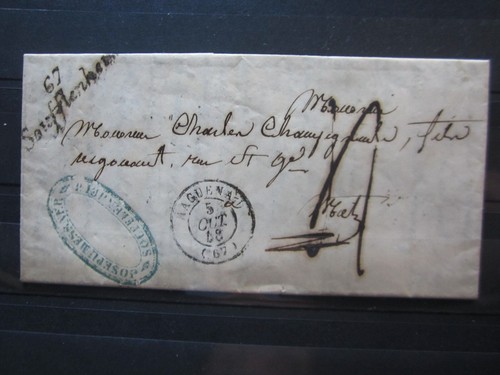 67
Soufflenheim
Monsieur
Monsieur Charles Champigneulle, fils
négociant, rue St
à
Metz
HAGUENAU
5
OCT.
(67)
SOUFFLENHEIM
JOSEPH MESSNER